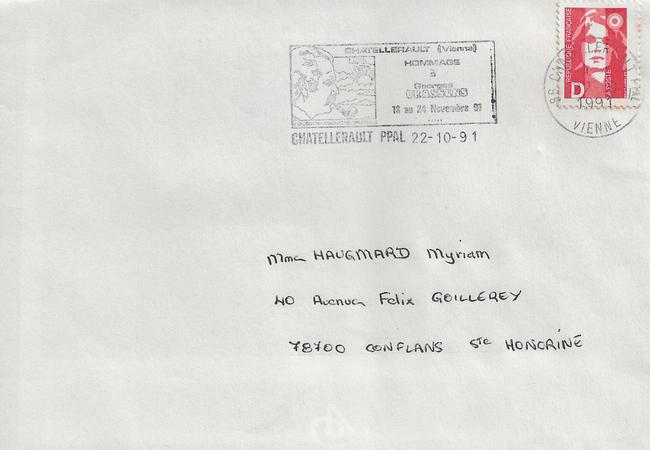 CHATELLERAULT (Vienne)
HOMMAGE
à
Georges
BRASSENS
18 au 24 Novembre 91
CHATELLERAULT PPAL 22-10-91
REPUBLIQUE FRANÇAISE
D
LA POSTE
86
1991
VIENNE
Mme HAUGMARD Myriam
40 Avenue Felix GOILLEREY
78700 CONFLANS Ste HONORINE